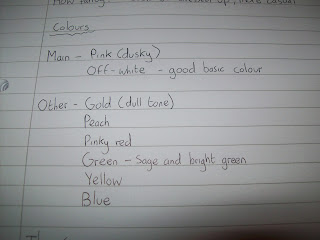 Colours
Main - Pink (dusky)
Off-white - good basic colour
Other - Gold (dull tone)
Peach
Pinky red
Green - Sage and bright green
Yellow
Blue